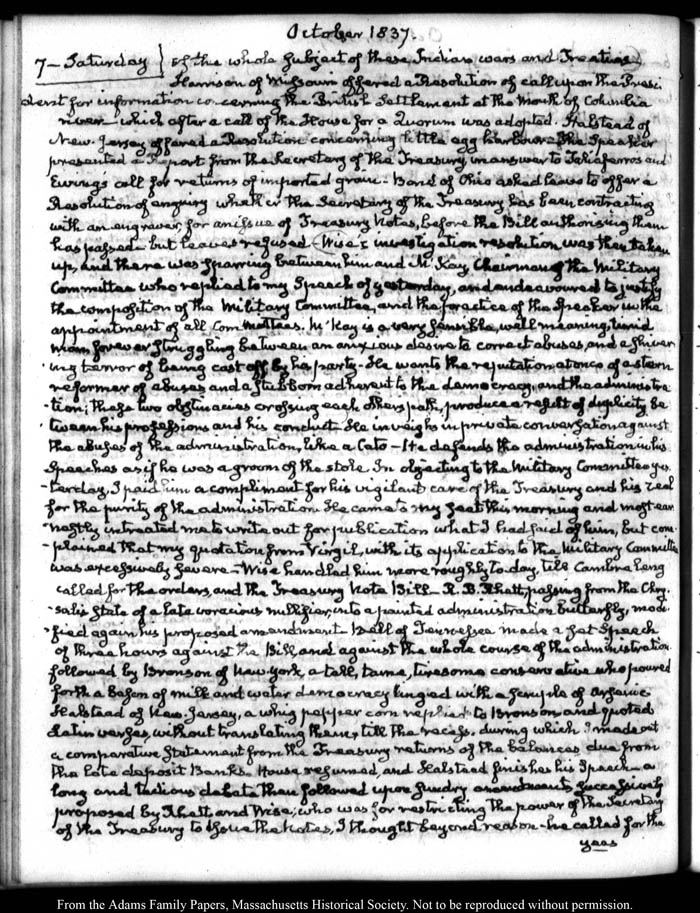 October 1837.
7 – Saturday } of the whole subject of these Indian wars and Treaties.
Harrison of Missouri offered a Resolution of call upon the Presi-
dent for information concerning the British Settlement at the Mouth of Columbia
river which after a call of the House for a Quorum was adopted. Halstead of
New Jersey offered a Resolution concerning little egg harbour – The Speaker
presented a Report from the Secretary of the Treasury in answer to Taliaferro's and
Ewing's call for returns of imported grain – Bond of Ohio asked leave to offer a
Resolution of enquiry whether the Secretary of the Treasury has been contracting
with an engraver, for an issue of Treasury Notes, before the Bill authorising them
has passed but leave was refused – Wise's investigation resolution was then taken
up, and there was sparring between him and McKay, Chairman of the Military
Committee who replied to my Speech of yesterday, and endeavoured to justify
the composition of the Military Committee, and the practice of the Speaker in the
appointment of all Committees. McKay is a very sensible, well meaning, timid
man forever struggling between an anxious desire to correct abuses, and a shiver-
ing terror of being cast off by his party – He wants the reputation at once of a stern
reformer of abuses and a stubborn adherent to the democracy, and the administra-
tion; these two obstinacies crossing each other's path, produce a result of duplicity be-
tween his professions and his conduct. He inveighs in private conversation against
the abuses of the administration, like a Cato – He defends the administration in his
Speeches as if he was a groom of the stole. In objecting to the Military Committee yes-
terday, I paid him a compliment for his vigilant care of the Treasury and his zeal
for the purity of the administration. He came to my seat this morning and most ear-
nestly intreated me to write out for publication what I had said of him, but com-
plained that my quotation from Virgil, with its application to the Military Committee
was excessively severe – Wise handled him more roughly to-day, till Cambreleng
called for the orders, and the Treasury Note Bill – R. B. Rhett, passing from the Chry-
salis State of a late voracious nullifier, into a painted administration butterfly, modi-
fied again his proposed amendment – Bell of Tennessee made a set Speech
of three hours against the Bill, and against the whole course of the administration.
followed by Bronson of New York, a tall, tame, tiresome conservative who poured
forth a bason of milk and water democracy tinged with a scruple of arsenic
Halstead of New Jersey, a whig pepper corn replied to Bronson and quoted
Latin verses, without translating them, till the recess. during which I made out
a comparative Statement from the Treasury returns of the balances due from
the late deposit Banks. House resumed, and Halstead finished his Speech – a
long and tedious debate then followed upon sundry amendments successively
proposed by Rhett and Wise, who was for restricting the power of the Secretary
of the Treasury to issue the Notes, I thought beyond reason – he called for the
yeas
From the Adams Family Papers, Massachusetts Historical Society. Not to be reproduced without permission.